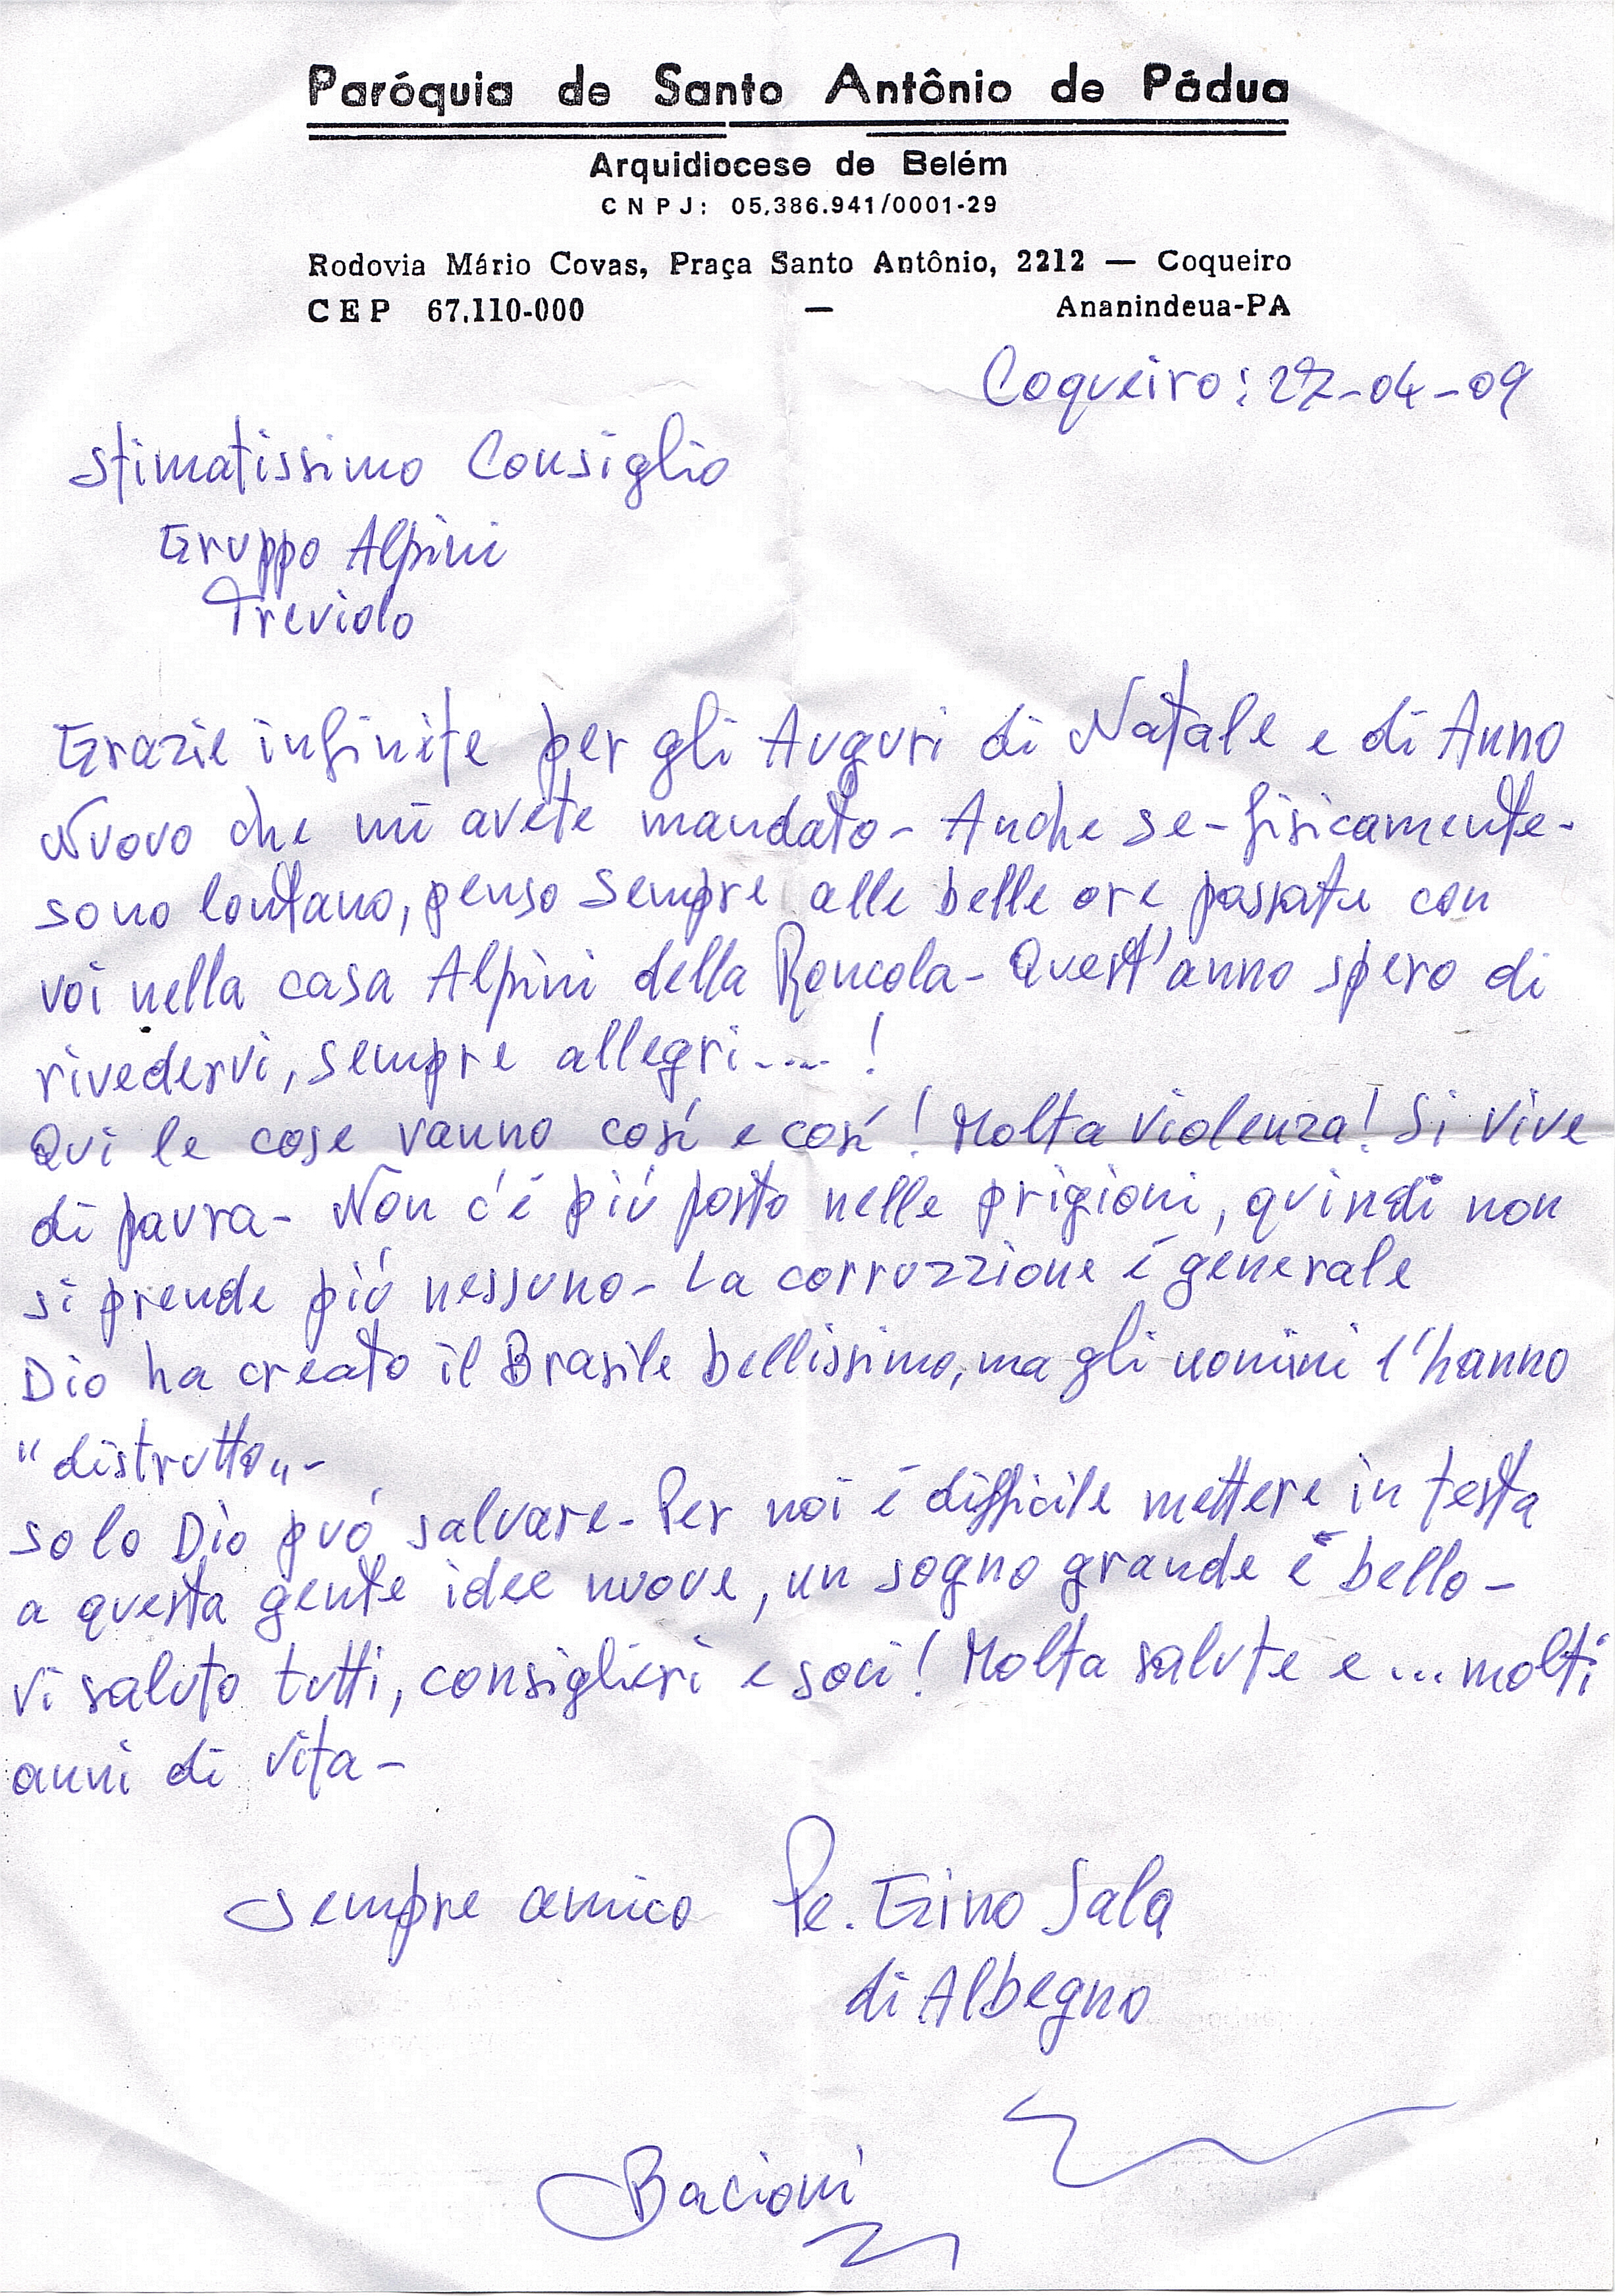 Paróquia de Santo Antônio de Pádua
Arquidiocese de Belém
CNPJ: 05.386.941/0001-29
Rodovia Mário Covas, Praça Santo Antônio, 2212 — Coqueiro
CEP 67.110-000 — Ananindeua-PA
Coqueiro: 27-04-09
Stimatissimo Consiglio
Gruppo Alpini
Treviolo
Grazie infinite per gli Auguri di Natale e di Anno
Nuovo che mi avete mandato - Anche se - fisicamente -
sono lontano, penso sempre alle belle ore passate con
voi nella casa Alpini della Roncola - Quest'anno spero di
rivedervi, sempre allegri....!
Qui le cose vanno cosí e cosí! Molta violenza! Si vive
di paura - Non c'é piú posto nelle prigioni, quindi non
si prende piú nessuno - La corruzzione é generale
Dio ha creato il Brasile bellissimo, ma gli uomini l'hanno
"distrutto" -
solo Dio puó salvare - Per noi é difficile mettere in testa
a questa gente idee nuove, un sogno grande é bello -
Vi saluto tutti, consiglieri e soci! Molta salute e ... molti
anni di vita -
Sempre amico Pe. Gino Sala
di Albegno
Bacioni